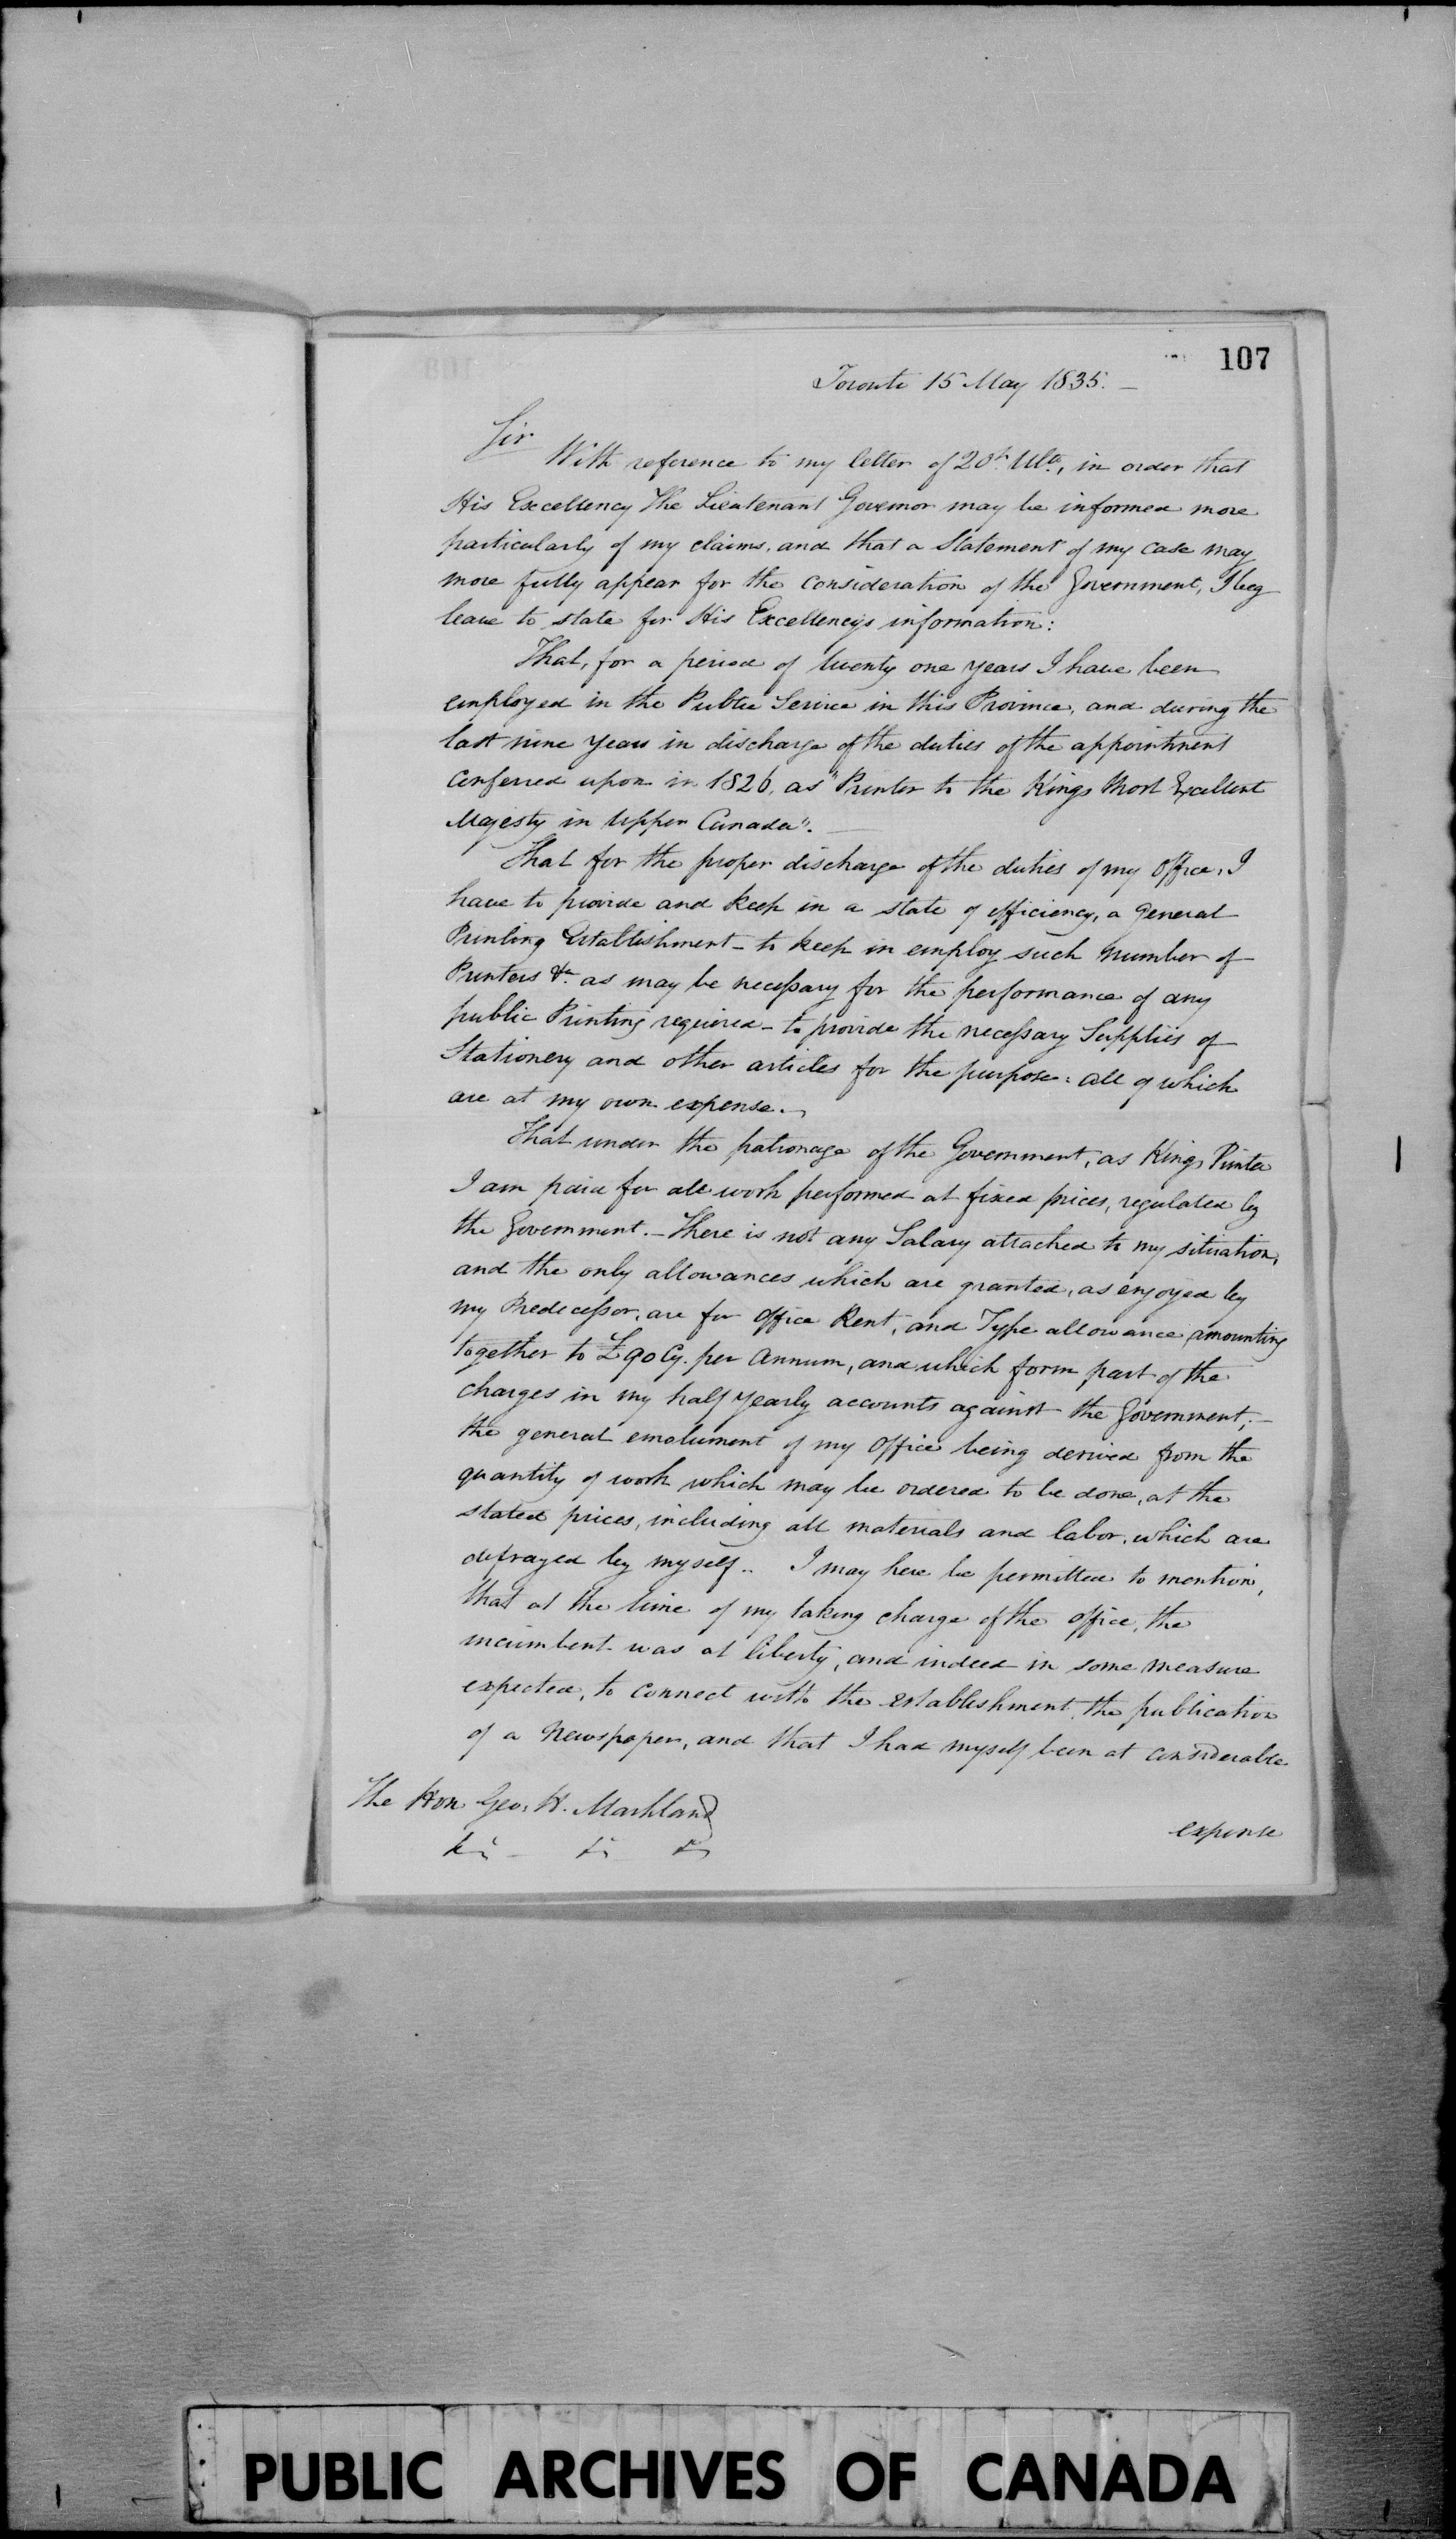 107
Toronto 15 May 1835. —
Sir
With reference to my letter of 20th Ulto, in order that
His Excellency The Lieutenant Governor may be informed more
particularly of my claims, and that a Statement of my case may
more fully appear for the consideration of the Government, I beg
leave to state for His Excellency's information:
That, for a period of twenty one years I have been
employed in the Public Service in this Province, and during the
last nine years in discharge of the duties of the appointment
conferred upon in 1826, as "Printer to the Kings Most Excellent
Majesty in Upper Canada". —
That for the proper discharge of the duties of my Office, I
have to provide and keep in a state of efficiency, a general
Printing Establishment - to keep in employ such number of
Printers &a. as may be necessary for the performance of any
public Printing required - to provide the necessary Supplies of
Stationery and other articles for the purpose: all of which
are at my own expense. —
That under the patronage of the Government, as Kings Printer
I am paid for all work performed at fixed prices, regulated by
the Government. - There is not any Salary attached to my situation,
and the only allowances which are granted, as enjoyed by
my Predecessor, are for Office Rent, and Type allowance, amounting
together to £90 Cy. per Annum, and which form part of the
charges in my half yearly accounts against the Government; -
the general emolument of my Office being derived from the
quantity of work which may be ordered to be done, at the
stated prices, including all materials and labor, which are
defrayed by myself.. I may here be permitted to mention,
that at the time of my taking charge of the Office, the
incumbent was at liberty, and indeed in some measure
expected, to connect with the establishment, the publication
of a Newspaper, and that I had myself been at considerable
The Hon Geo. H. Markland
expense
&c - &c &c
PUBLIC ARCHIVES OF CANADA